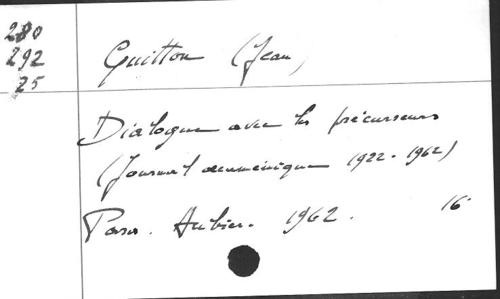 280
292
25
Guitton (Jean)
Dialogue avec les précurseurs
(Journal œcuménique 1922-1962)
Paris. Aubier. 1962. 16°